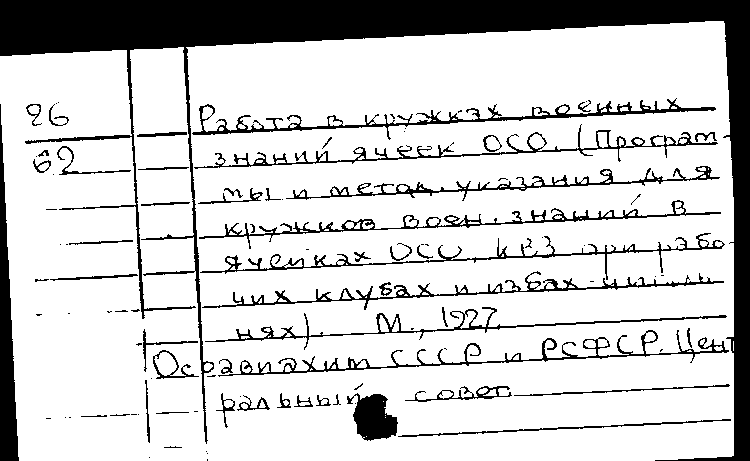 26
62
Работа в кружках военных
знаний ячеек ОСО. (Програм-
мы и метод. указания для
кружков воен. знаний в
ячейках ОСО, КВЗ при рабо-
чих клубах и избах-читаль
нях). М., 1927.
Осоавиахим СССР и РСФСР. Цент
ральный совет